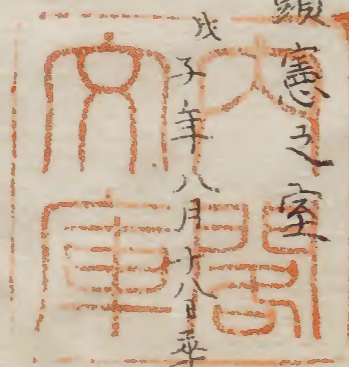 憲之室
戊子年八月十八日卒
内閣
文庫